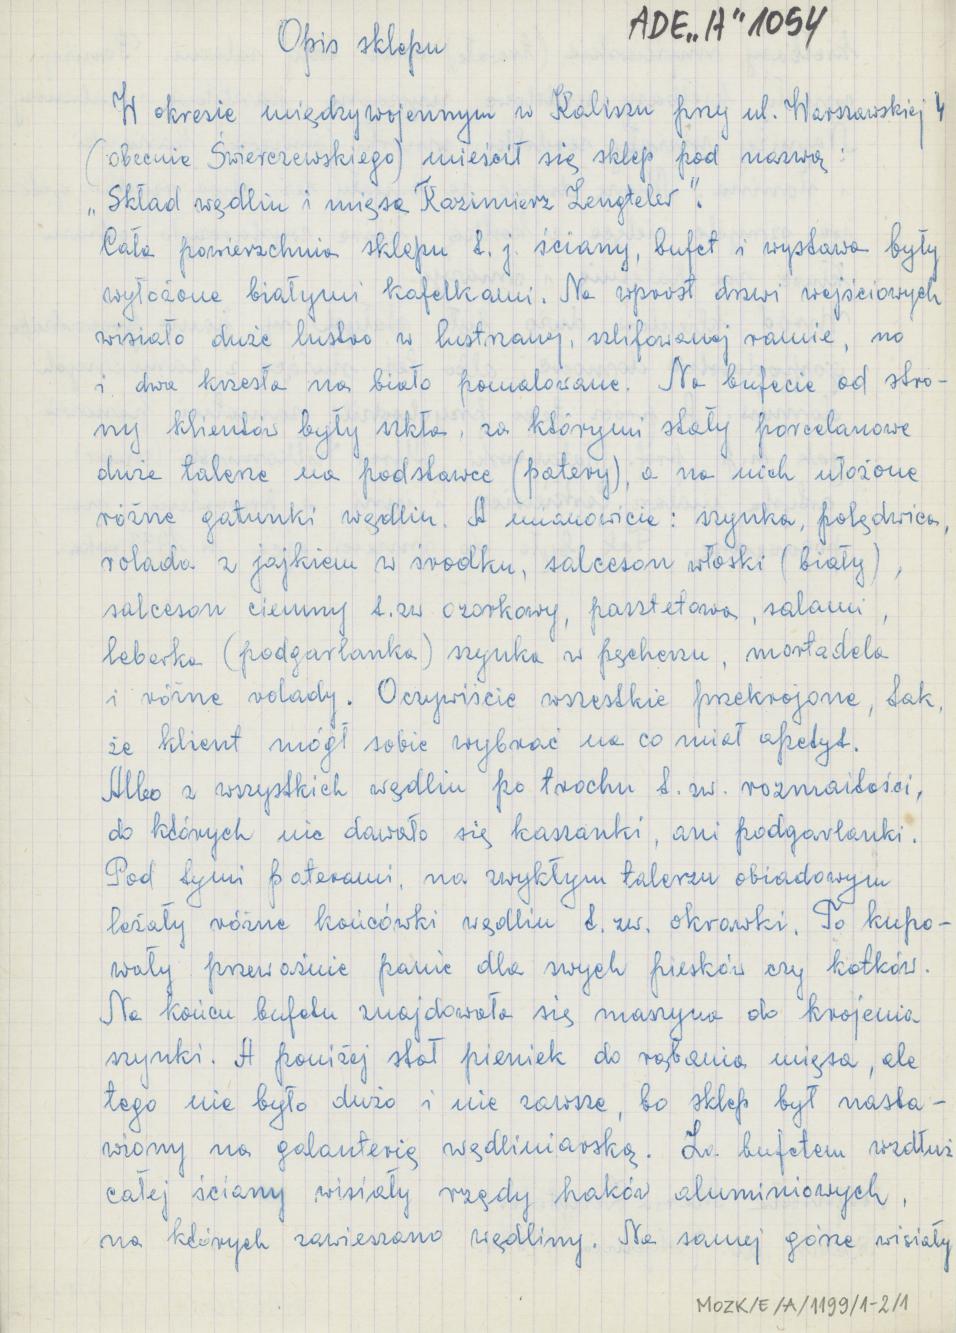 ADE „A" 1054
Opis sklepu
W okresie międzywojennym w Kaliszu przy ul. Warszawskiej 4
(obecnie Świerczewskiego) mieścił się sklep pod nazwą:
„Skład wędlin i mięsa Kazimierz Lengteler".
Cała powierzchnia sklepu t.j. ściany, bufet i wystawa były
wyłożone białymi kafelkami. Na wprost drzwi wejściowych
wisiało duże lustro w lustrzanej, szlifowanej ramie, no
i dwa krzesła na biało pomalowane. Na bufecie od stro-
ny klientów były szkła, za którymi stały porcelanowe
duże talerze na podstawce (patery), a na nich ułożone
różne gatunki wędlin. A mianowicie: szynka, polędwica,
rolada z jajkiem w środku, salceson włoski (biały),
salceson ciemny t.zw ozorkowy, pasztetowa, salami,
leberka (podgarlanka) szynka w pęcherzu, mortadela
i różne rolady. Oczywiście wszestkie przekrojone, tak,
że klient mógł sobie wybrać na co miał apetyt.
Albo z wszystkich wędlin po trochu t.zw. rozmaitości,
do których nie dawało się kaszanki, ani podgarlanki.
Pod tymi paterami, na zwykłym talerzu obiadowym
leżały różne końcówki wędlin t.zw. okrawki. To kupo-
wały przeważnie panie dla swych piesków czy kotków.
Na końcu bufetu znajdowała się maszyna do krojenia
szynki. A poniżej stał pieniek do rąbania mięsa, ale
tego nie było dużo i nie zawsze, bo sklep był nasta-
wiony na galanterię wędliniarską. Za bufetem wzdłuż
całej ściany wisiały rzędy haków aluminiowych,
na których zawieszano wędliny. Na samej górze wisiały
MOZK/E/A/1199/1-2/1